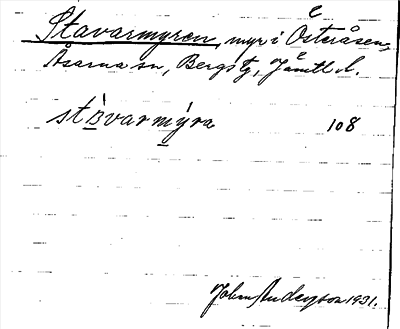 Stavarmyren, myr i Österåsen,
Åsarna sn, Bergs tg, Jämtl. l.
stàvarmýra 108
John Andersson 1931.